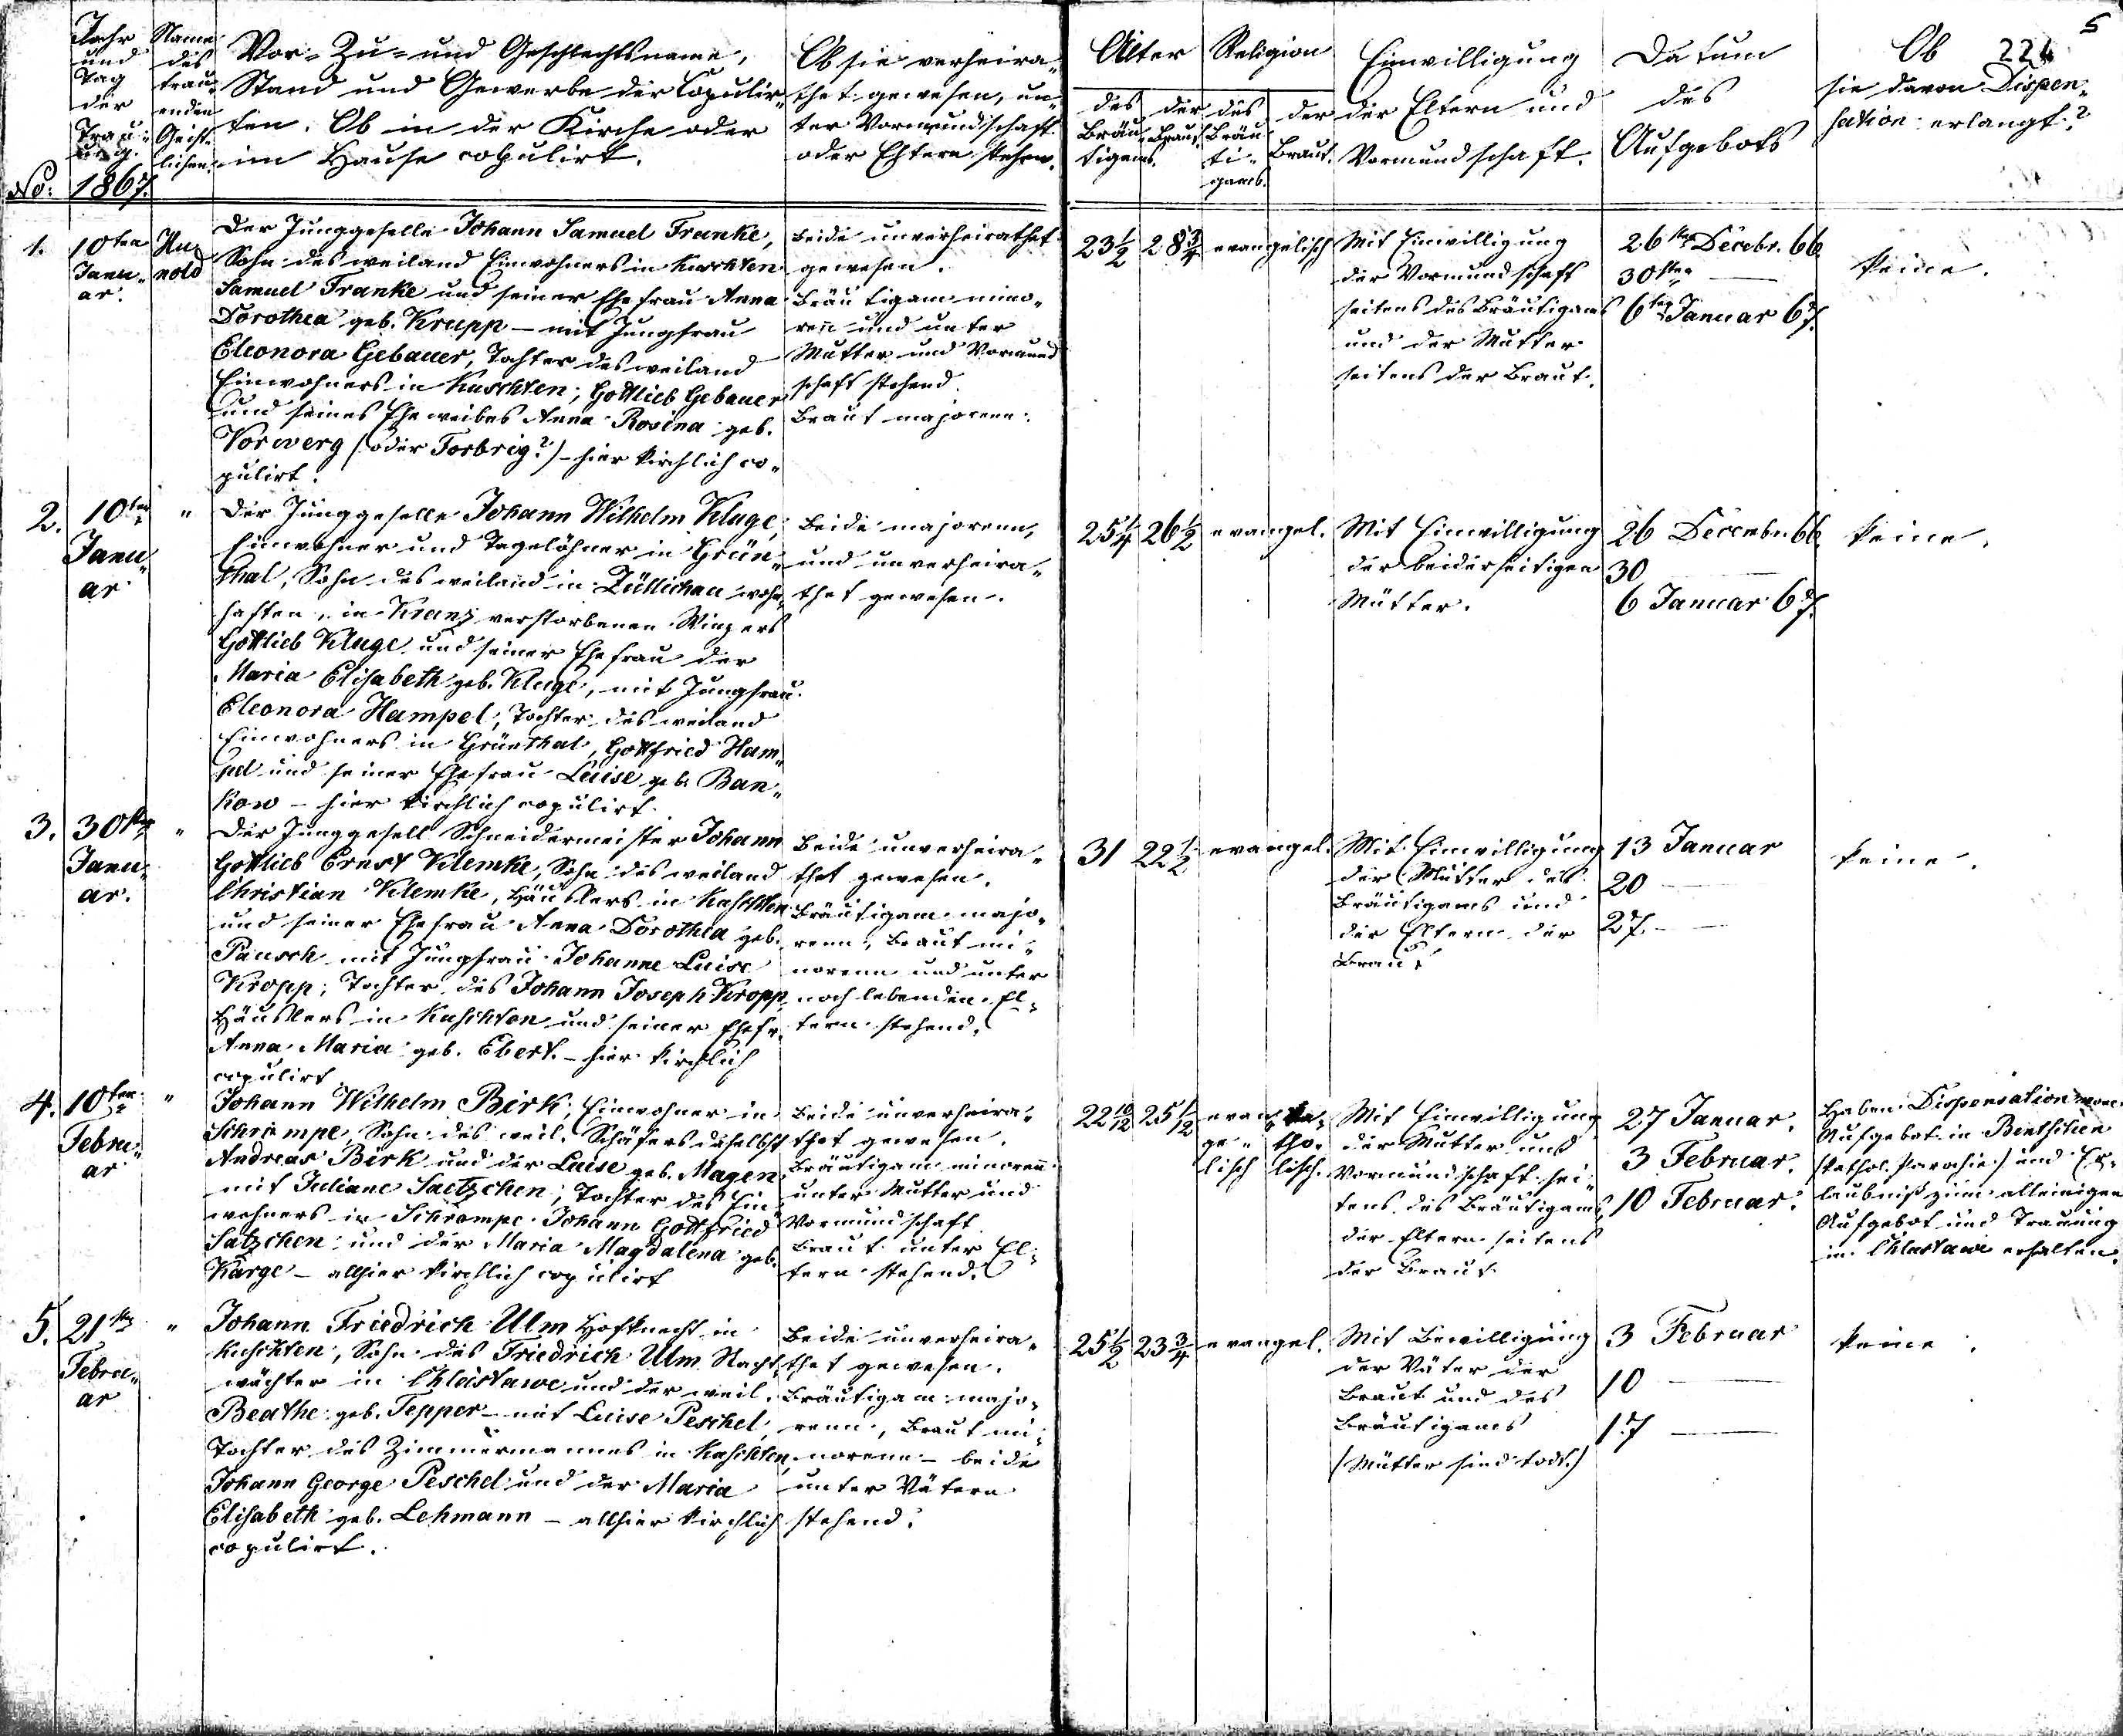 5
224
Jahr
und
Tag
der
Trau-
ung.
Name
des
trau-
enden
Geist-
lichen.
Vor- Zu- und Geschlechtsname,
Stand und Gewerbe der Copulir-
ten. Ob in der Kirche oder
im Hause copulirt.
Ob sie verheira-
thet gewesen, un-
ter Vormundschaft
oder Eltern stehen.
Alter
des
Bräu-
tigams.
der
Braut.
Religion
des
Bräu-
ti-
gams.
der
Braut.
Einwilligung
der Eltern und
Vormundschaft.
Datum
des
Aufgebots
Ob
sie davon Dispen-
sation erlangt?
No: 1867.
1.
10ten
Janu-
ar.
Hu-
nold
Der Junggeselle Johann Samuel Franke,
Sohn des weiland Einwohners in Kuschten
Samuel Franke und seiner Ehefrau Anna
Dorothea geb. Krupp – mit Jungfrau
Eleonora Gebauer, Tochter des weiland
Einwohners in Kuschten, Gottlieb Gebauer
und seines Eheweibes Anna Rosina geb.
Vorwerg (oder Forbrig?) – hier kirchlich co-
pulirt.
Beide unverheirathet
gewesen.
Bräutigam mino-
renn und unter
Mutter und Vormund
schaft stehend.
Braut majorenn.
23½ 28¾ evangelisch
Mit Einwilligung
der Vormundschaft
seitens des Bräutigams
und der Mutter
seitens der Braut.
26sten Decebr. 66.
30sten —
6ten Januar 67.
keine.
2.
10ten
Janu-
ar
"
Der Junggeselle Johann Wilhelm Kluge,
Einwohner und Tagelöhner in Grün-
thal, Sohn des weiland in Züllichau wohn-
haften, in Kranz verstorbenen Winzers
Gottlieb Kluge und seiner Ehefrau der
Maria Elisabeth geb. Kluge, mit Jungfrau
Eleonora Hampel, Tochter des weiland
Einwohners in Grünthal, Gottfried Ham-
pel und seiner Ehefrau Luise geb. Ban-
kow – hier kirchlich copulirt.
Beide majorenn,
und unverheira-
thet gewesen.
25¼ 26½ evangel.
Mit Einwilligung
der beiderseitigen
Mütter.
26 Decembr. 66.
30 —
6 Januar 67.
keine.
3.
30sten
Janu-
ar.
"
Der Junggesell Schneidermeister Johann
Gottlieb Ernst Klemke, Sohn des weiland
Christian Klemke, Häuslers in Kuschten
und seiner Ehefrau Anna Dorothea geb.
Pausch mit Jungfrau Johanne Luise
Kropp, Tochter des Johann Joseph Kropp
Häuslers in Kuschten und seiner Ehefr.
Anna Maria geb. Ebert. – hier kirchlich
copulirt
Beide unverheira-
thet gewesen.
Bräutigam majo-
renn, Braut mi-
norenn und unter
noch lebenden El-
tern stehend.
31 22½ evangel.
Mit Einwilligung
der Mutter des
Bräutigams und
der Eltern der
Braut
13 Januar
20 —
27. —
keine.
4.
10ten
Febru-
ar
"
Johann Wilhelm Birk, Einwohner in
Schrimpe, Sohn des weil. Schäfers daselbst
Andreas Birk und der Luise geb. Magen
mit Juliane Saetzchen, Tochter des Ein-
wohners in Schrompe Johann Gottfried
Satzchen und der Maria Magdalena geb.
Karge – allhier kirchlich copulirt
Beide unverheira-
thet gewesen.
Bräutigam minorenn
unter Mutter und
Vormundschaft
Braut unter El-
tern stehend.
22 10/12 25½
evan-
ge-
lisch
ka-
tho-
lisch.
Mit Einwilligung
der Mutter und
Vormundschaft sei-
tens des Bräutigams,
der Eltern seitens
der Braut.
27 Januar.
3 Februar.
10 Februar.
Haben Dispensation
Aufgebot in Bentschen
(kathol. Parochie) und Er-
laubniß zum alleinigen
Aufgebot und Trauung
in Chlastawe erhalten.
5.
21sten
Febru-
ar
"
Johann Friedrich Ulm Hofknecht in
Kuschten, Sohn des Friedrich Ulm Nacht-
wächter in Chlastawe und der weil.
Beathe geb. Tepper – mit Luise Peschel,
Tochter des Zimmermannes in Kuschten,
Johann George Peschel und der Maria
Elisabeth geb. Lehmann – allhier kirchlich
copulirt.
Beide unverheira-
thet gewesen.
Bräutigam majo-
renn, Braut mi-
norenn – beide
unter Vätern
stehend.
25½ 23¾ evangel.
Mit Bewilligung
der Väter der
Braut und des
Bräutigams
(Mütter sind todt.)
3 Februar
10 —
17 —
keine.